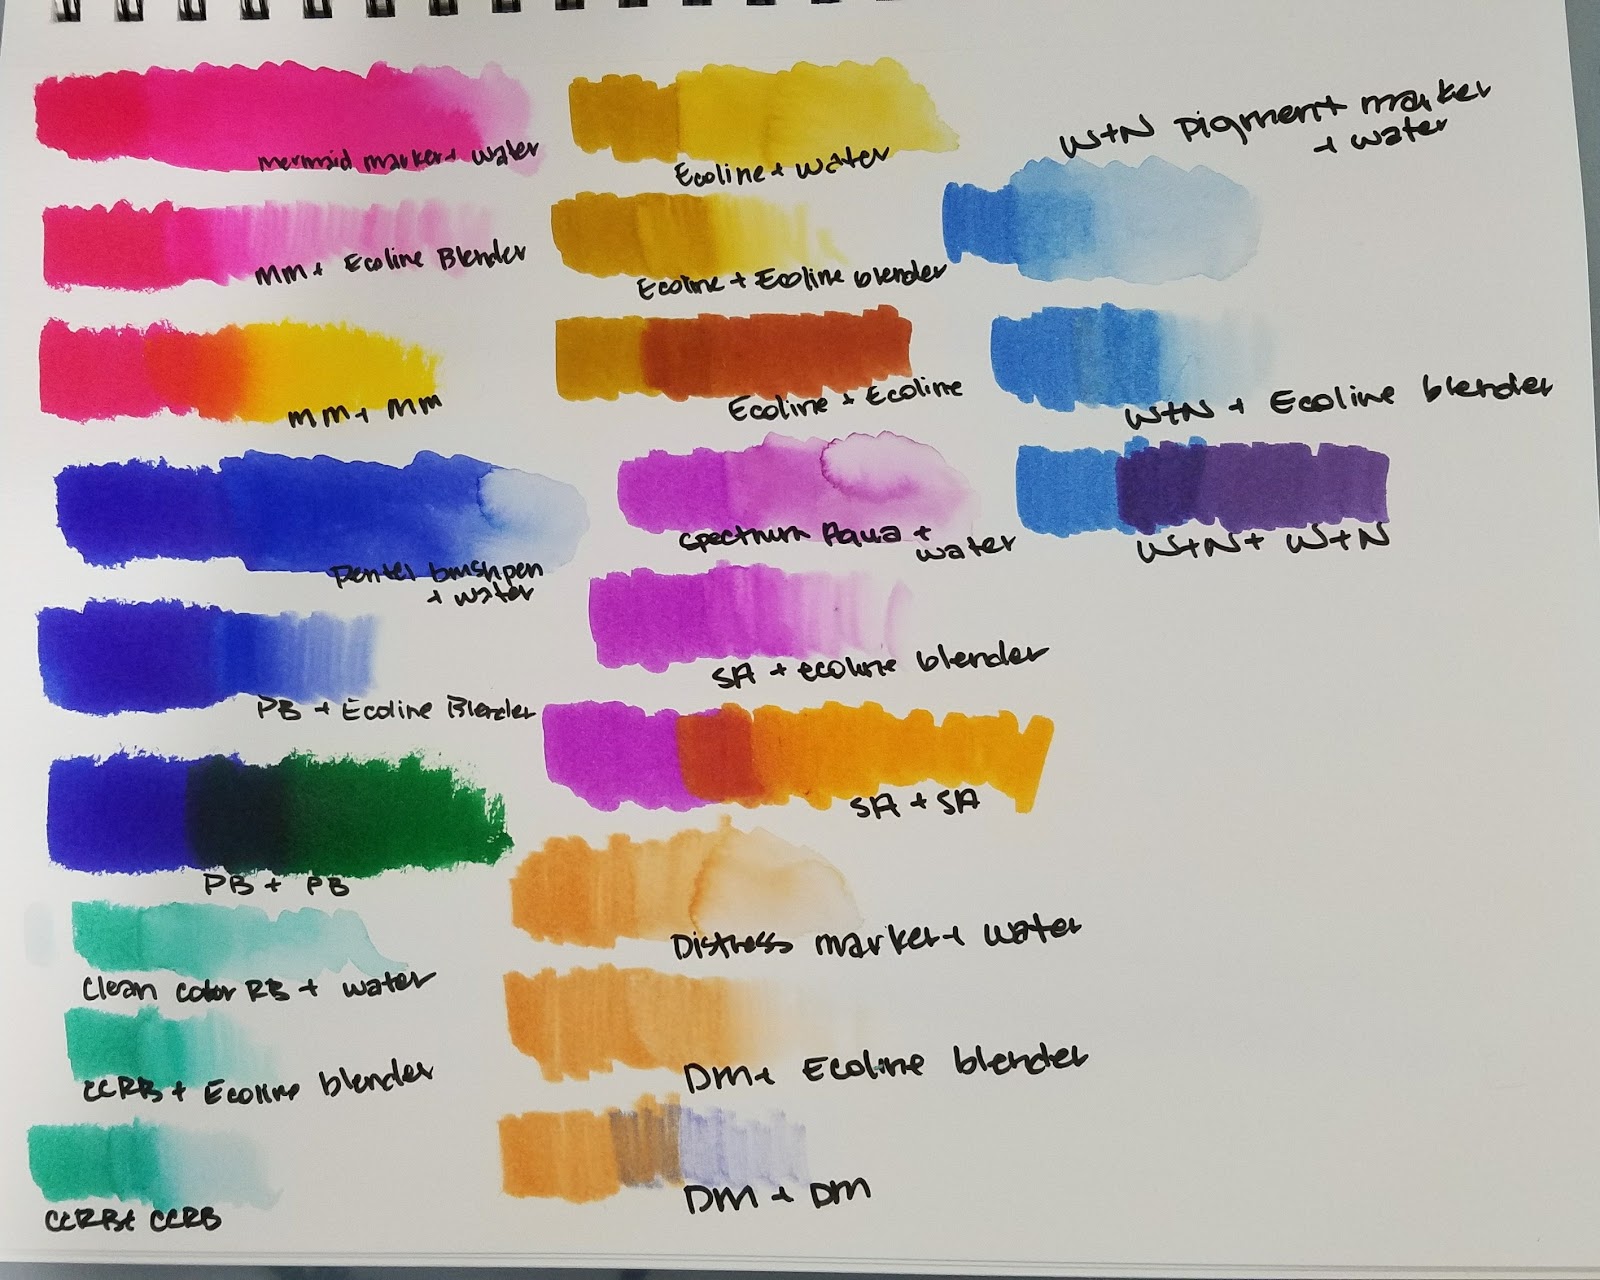 mermaid marker + water
MM + Ecoline Blender
MM + MM
Pentel brushpen
+ water
PB + Ecoline Blender
PB + PB
Clean color RB + water
CCRB + Ecoline blender
CCRB + CCRB
Ecoline + water
Ecoline + Ecoline blender
Ecoline + Ecoline
Spectrum Aqua +
water
SA + ecoline blender
SA + SA
Distress marker + water
DM + Ecoline blender
DM + DM
W+N pigment marker
+ water
W+N + Ecoline blender
W+N + W+N